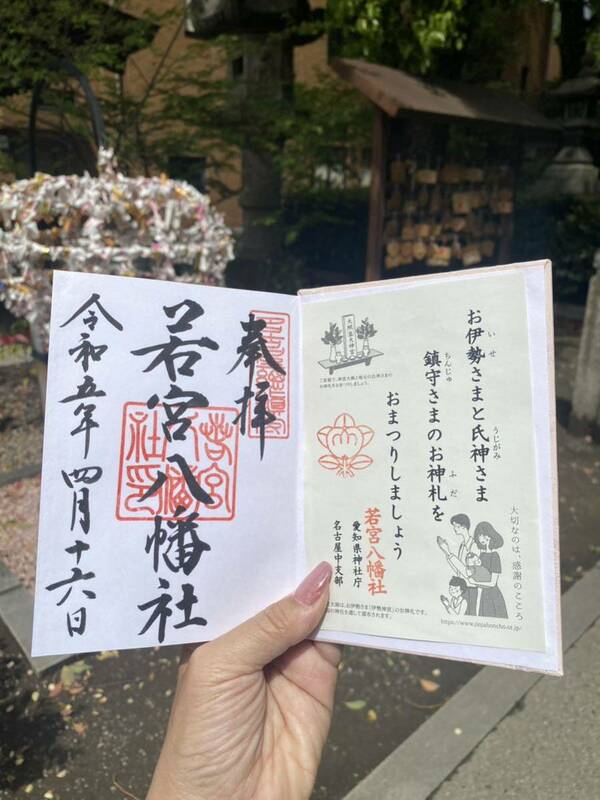 奉拝
若宮八幡社
若宮八幡社印
令和五年 四月十六日
お伊勢さまと氏神さま
いせ
うじがみ
鎮守さまのお神札を
ちんじゅ
ふだ
おまつりしましょう
若宮八幡社
愛知県神社庁
名古屋中支部
大切なのは、感謝のこころ
https://www.jinjahoncho.or.jp/